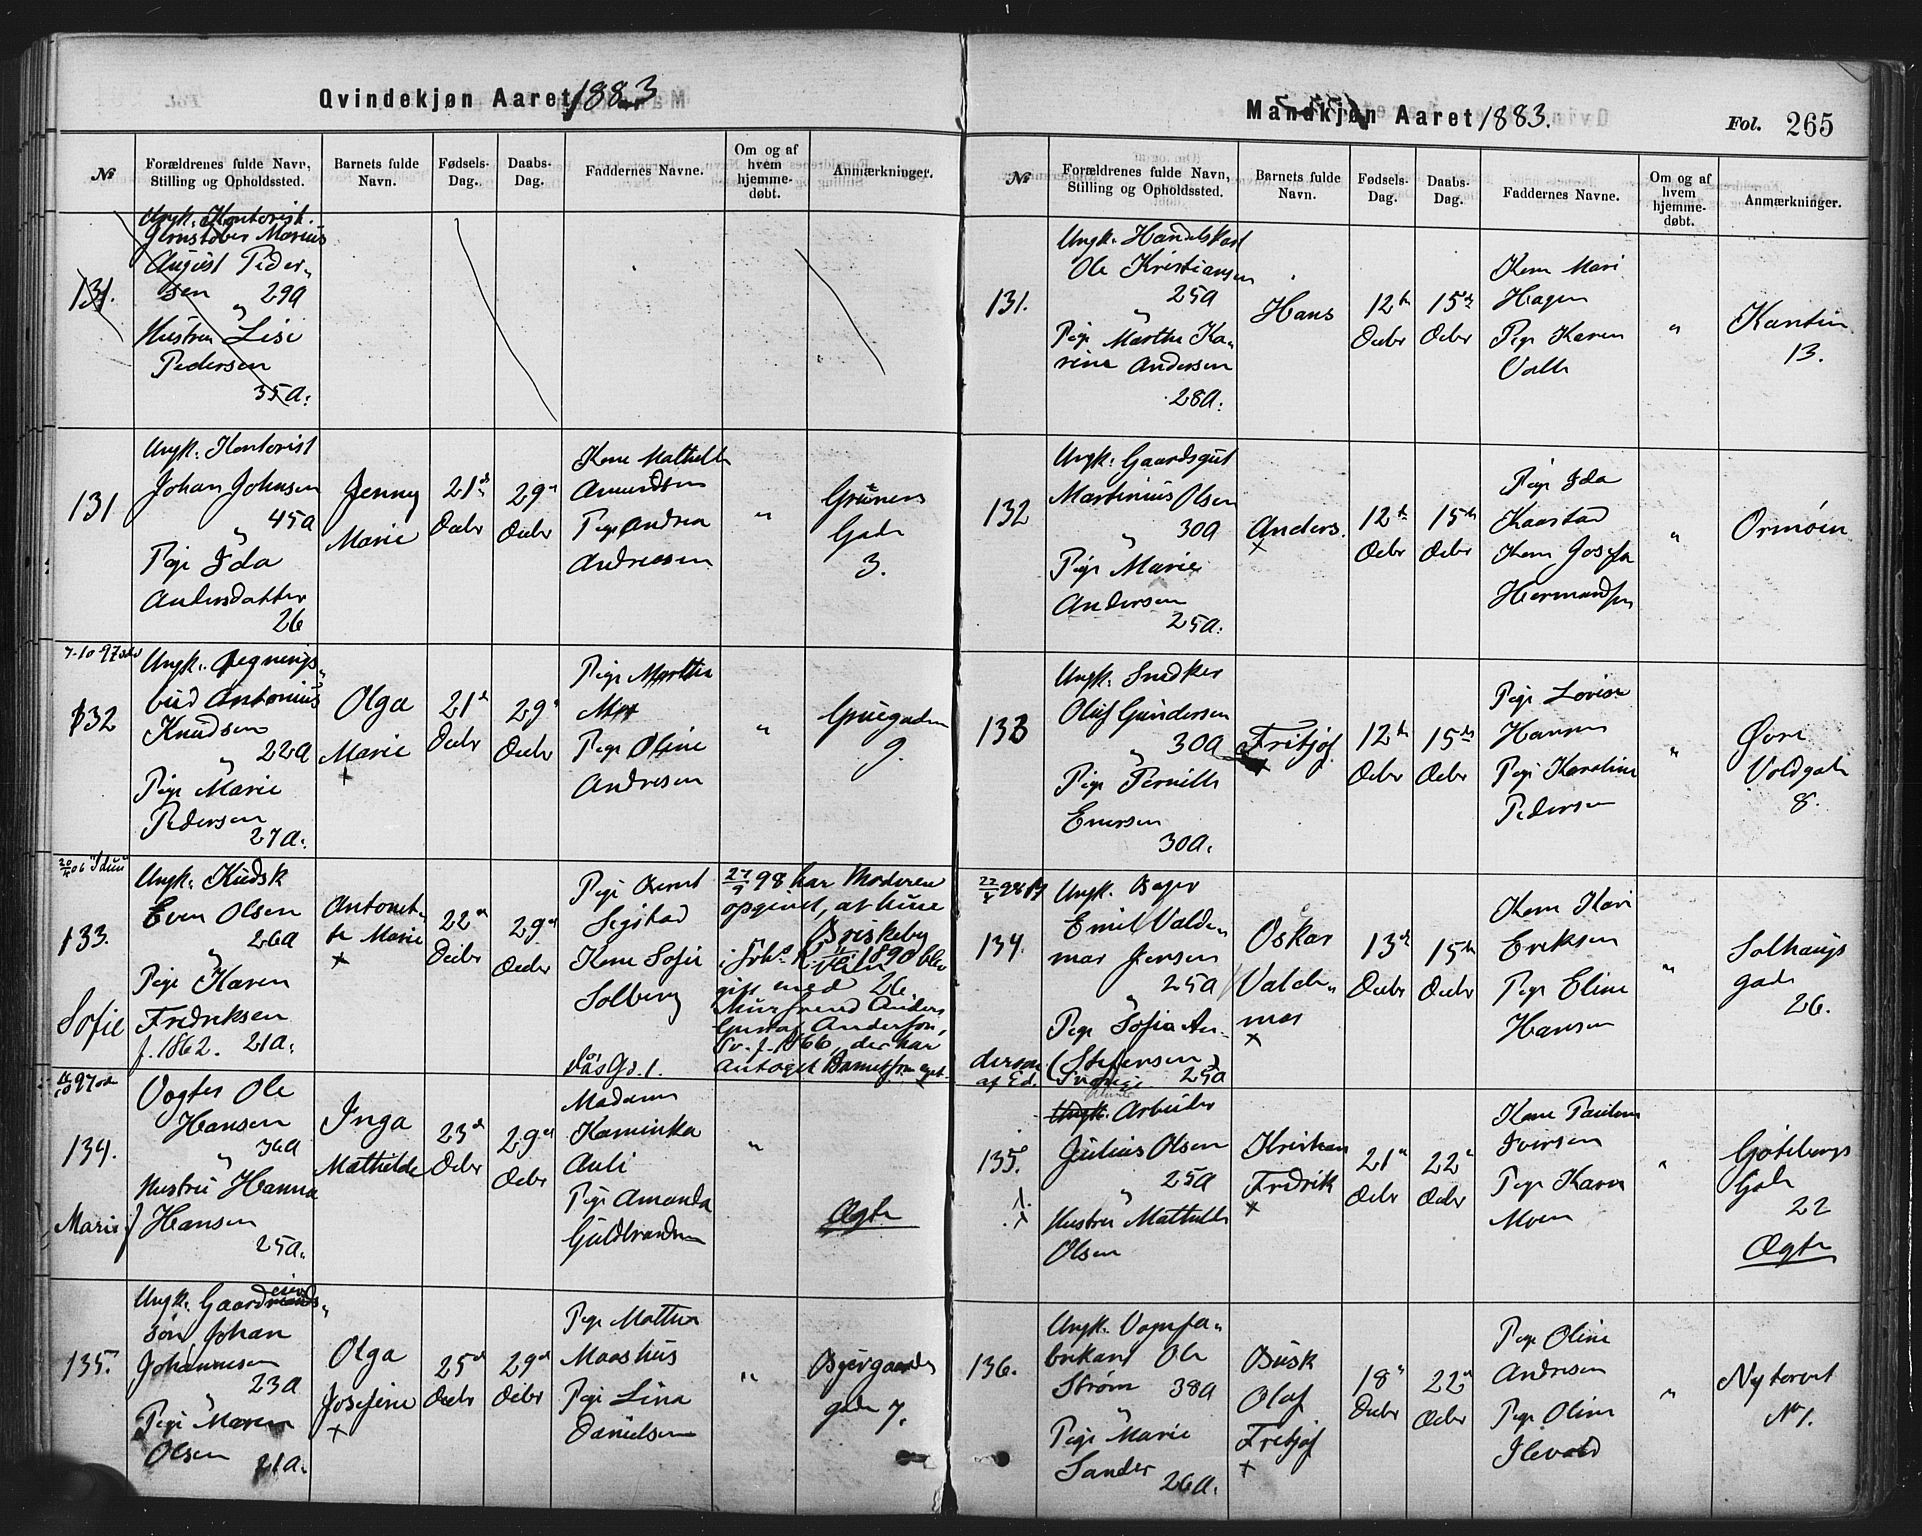 Qvindekjøn Aaret 1883
№
Forældrenes fulde Navn,
Stilling og Opholdssted.
Barnets fulde
Navn.
Fødsels-
Dag.
Daabs-
Dag.
Faddernes Navne.
Om og af
hvem
hjemme-
døbt.
Anmærkninger.
131.
Ungk. Kontorist.
Marius
August Peder-
sen 29a
"
Hustru Lise
Pedersen
35a.
131
Ungk. Kontorist
Johan Johnsen
45a
"
Pige Ida
Andersdatter
26
Jenny
Marie
21de
Decbr
29de
Decbr
Kone Mathilde
Amundsen
Pige Andrea
Andreasen
"
Grüners
Gade
3.
7-10-97
132
Ungk. Regnings-
bud Antonius
Knudsen
22a
"
Pige Marie
Pedersen
27a.
Olga
Marie
+
21de
Decbr
29de
Decbr
Pige Marthe
Moe
Pige Oline
Andresen
"
Gruegaden
9.
20/4 06
133.
Sofie
Ungk. Kudsk
Even Olsen
26a
"
Pige Karen
Fredriksen
f. 1862. 21a.
Antonet-
te Marie
+
22de
Decbr
29de
Decbr
Pige Bernt
Segstad
Kone Sofie
Solberg
27/9 98 har Moderen
opgivet, at hun
Briskeby
1890 blev
gift med 26.
Murſvend Anders
Gustaf Anderſon,
f. 1866, der har
antaget Barnet ſom eget.
134.
Marie
Vogter Ole
Hansen
36a
"
Hustru Hanna
Hansen
25a.
Inga
Mathilde
23de
Decbr
29de
Decbr
Madam
Kaminka
Auli
Pige Amanda
Guldbrandsen
"
Ægte
135.
Ungk. Gaardeier-
søn Johan
Johannesen
23a
"
Pige Maren
Olsen 21a.
Olga
Josefine
+
25de
Decbr
29de
Decbr
Pige Mathea
Maashus
Pige Lina
Danielsen
"
Bjergaards
gade 7.
Mandkjøn Aaret 1883.
Fol. 265
№
Forældrenes fulde Navn,
Stilling og Opholdssted.
Barnets fulde
Navn.
Fødsels-
Dag.
Daabs-
Dag.
Faddernes Navne.
Om og af
hvem
hjemme-
døbt.
Anmærkninger.
131.
Ungk. Handelskarl
Ole Kristiansen
25a
"
Pige Marthe Ka-
rine Andersen
28a.
Hans
12te
Decbr
15de
Decbr
Kone Mari
Hagen
Pige Karen
Valle
"
Kantin
13.
132
Ungk. Gaardsgut
Martinius Olsen
30a
"
Pige Marie
Andersen
25a.
Anders.
+
12te
Decbr
15de
Decbr
Pige Ida
Kaarstad
Kone Josefa
Hermandsen
"
Ormøen
133
Ungk. Snedker
Oluf Gundersen
30a
"
Pige Pernille
Enersen
30a.
Fritjof
12te
Decbr
15de
Decbr
Pige Lovise
Hansen
Pige Karoline
Pedersen
"
Øvre
Voldgade
8.
134.
Ungk. Bager
Emil Valde-
mar Jensen
25a
"
Pige Sofia An-
derson (Stefensen)
25a
Oskar
Valde-
mar
+
13de
Decbr
15de
Decbr
Kone Kari
Eriksen
Pige Eline
Hansen
"
Solhaugs
gade
26.
135.
Arbeider
Julius Olsen
25a
"
Hustru Mathilde
Olsen
Kristian
Fredrik
+
21de
Decbr
22de
Decbr
Kone Pauline
Iversen
Pige Karen
Moen
"
Gøteborgs
Gade
22
Ægte
136.
Ungk. Vognfa-
brikant Ole
Strøm 38a
"
Pige Marie
Sander 26a.
Busk
Olaf
Fritjof
+
18de
Decbr
22de
Decbr
Pige Oline
Andresen
Pige Oline
Ilevold
"
Nytorvet
№ 1.